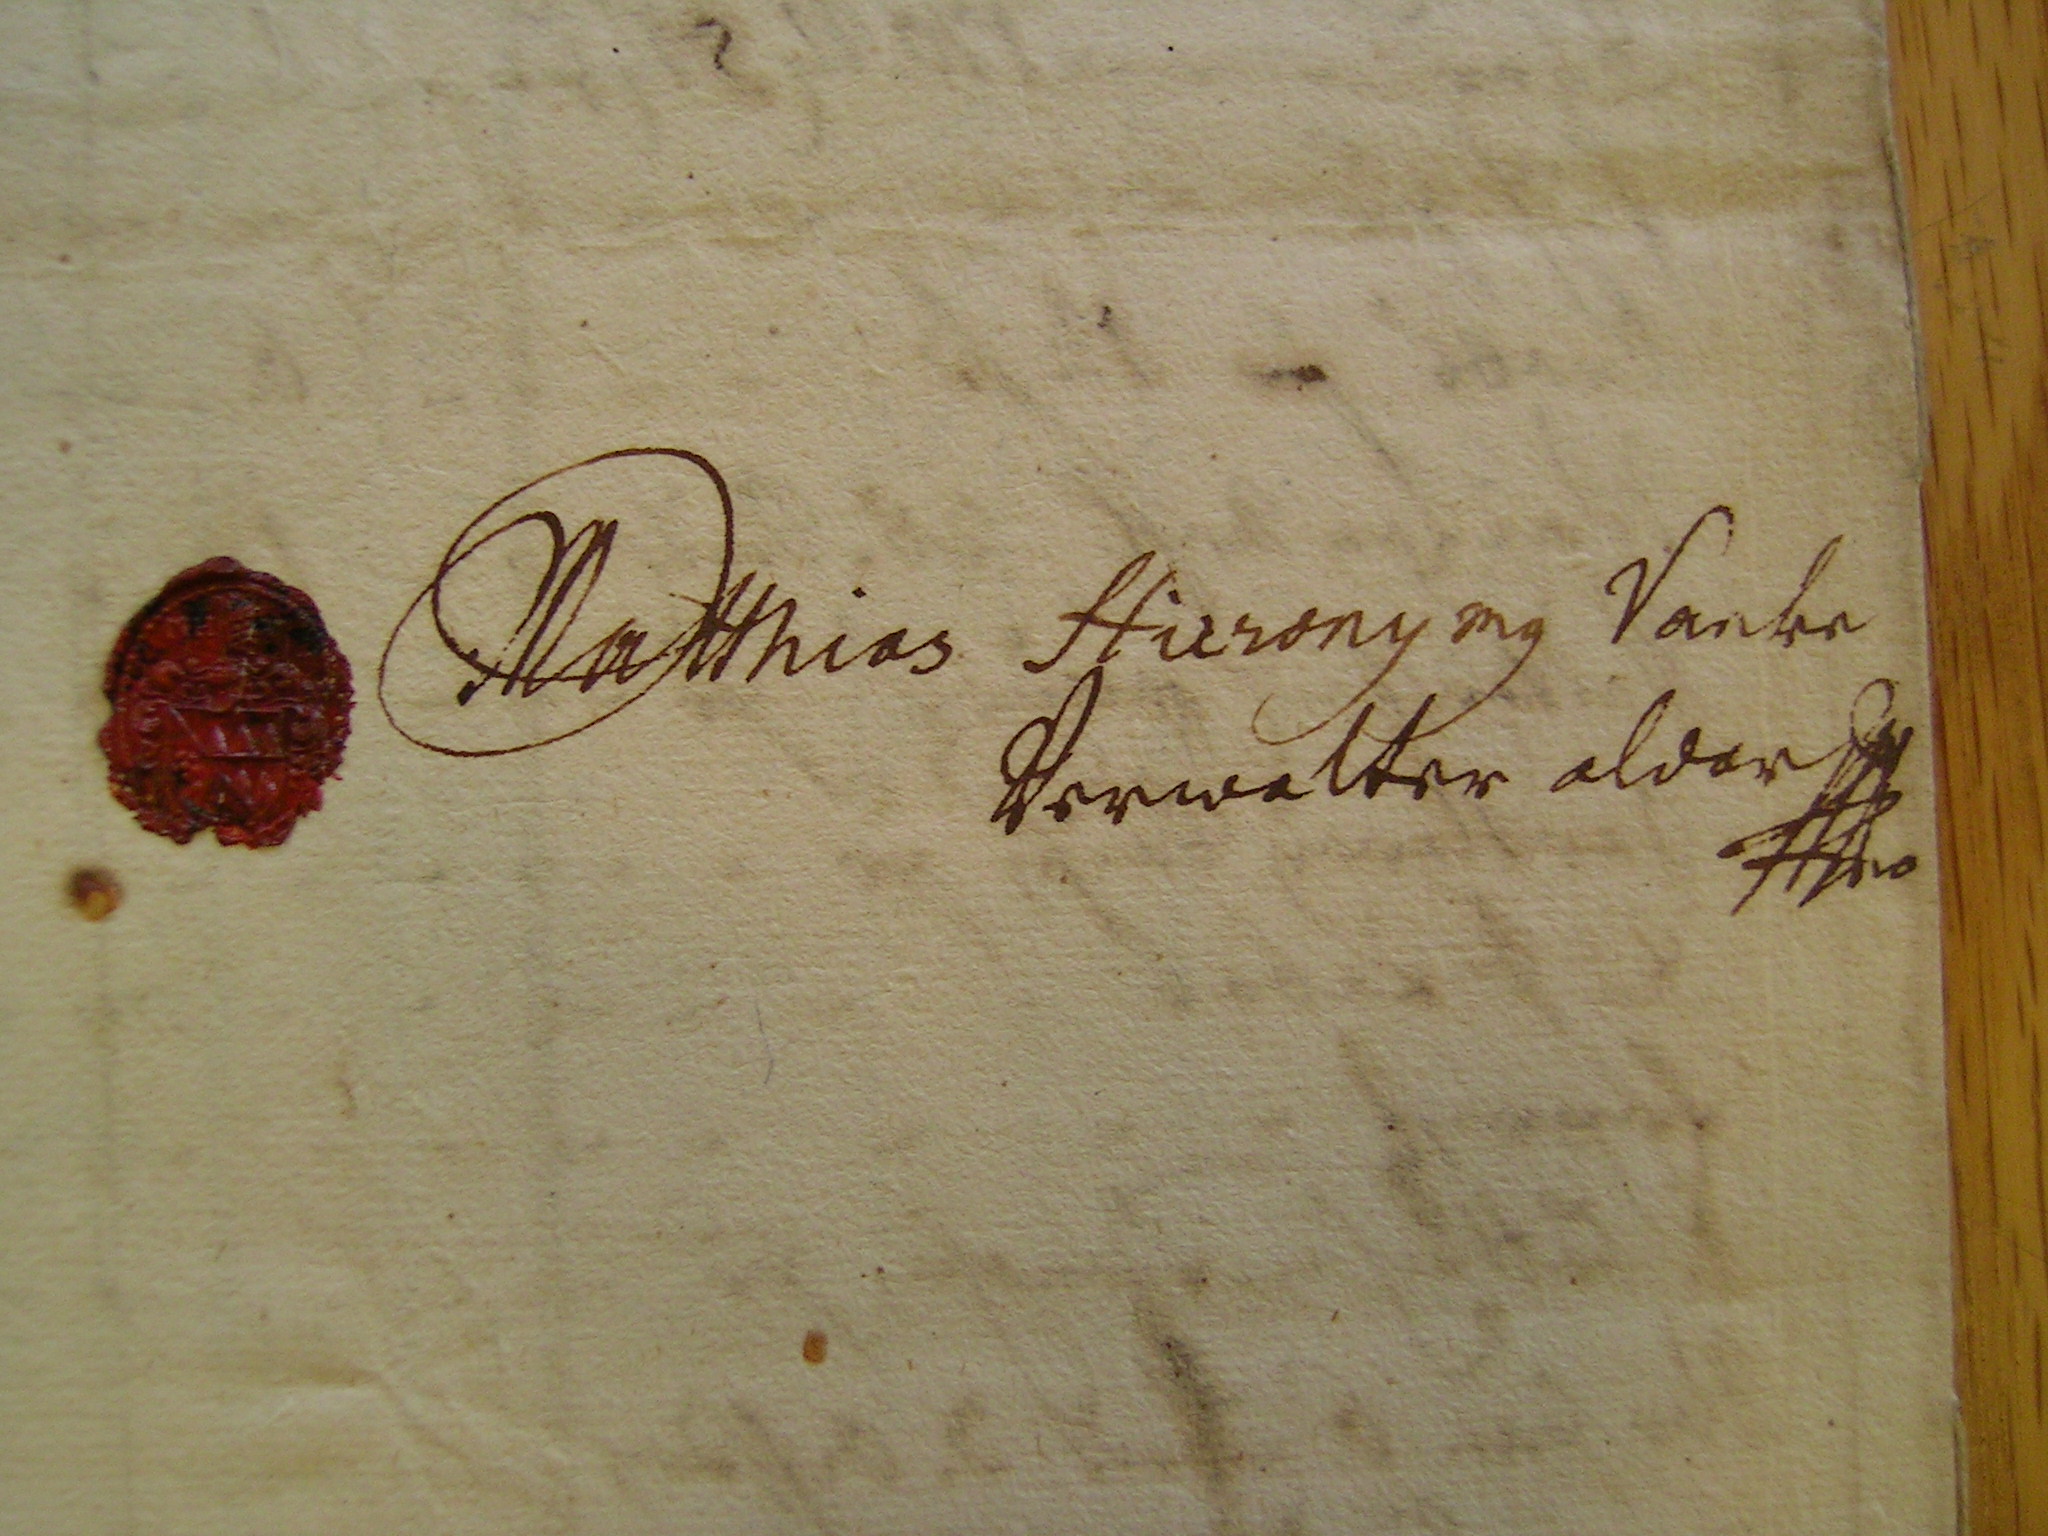 Matthias Hieronymg Vaeke
Verwalter aldar